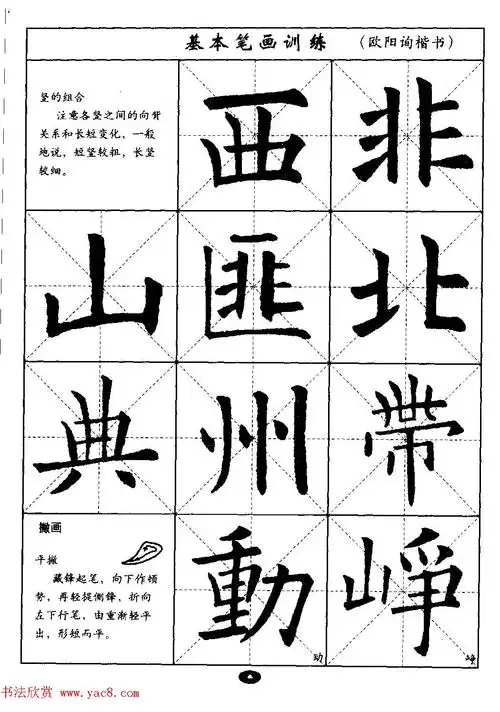 基本笔画训练 （欧阳询楷书）
竖的组合
注意各竖之间的向背
关系和长短变化，一般
地说，短竖较粗，长竖
较细。
西 非
山 匪 北
典 州 帶
撇画
平撇
藏锋起笔，向下作顿
势，再轻提侧锋，折向
左下行笔，由重渐轻平
出，形短而平。
動 崢
动 峥
书法欣赏 www.yac8.com